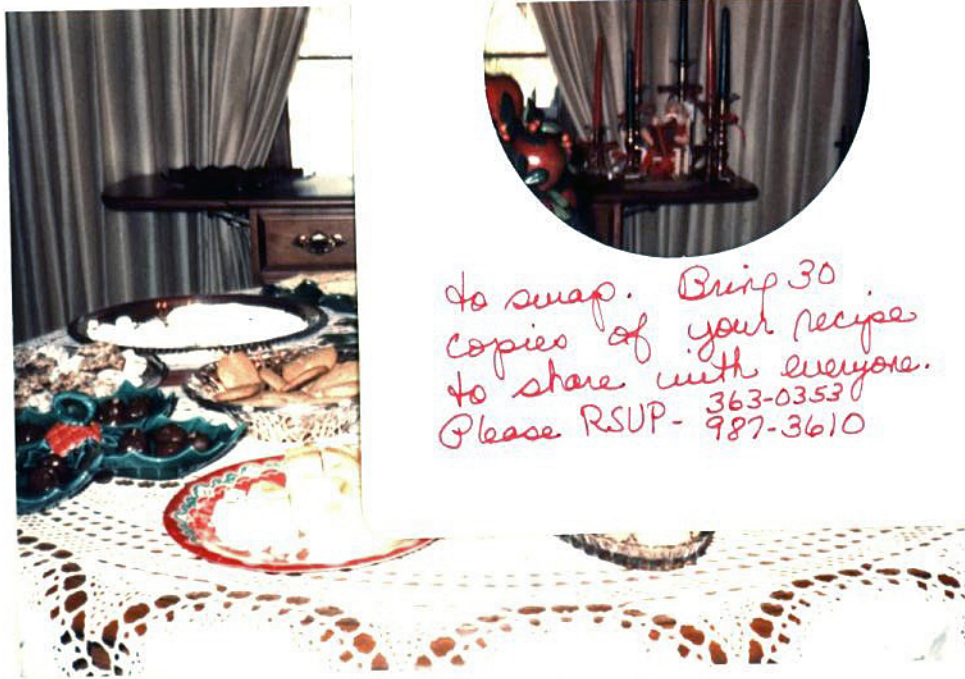 to swap. Bring 30
copies of your recipe
to share with everyone.
363-0353
Please RSVP- 987-3610